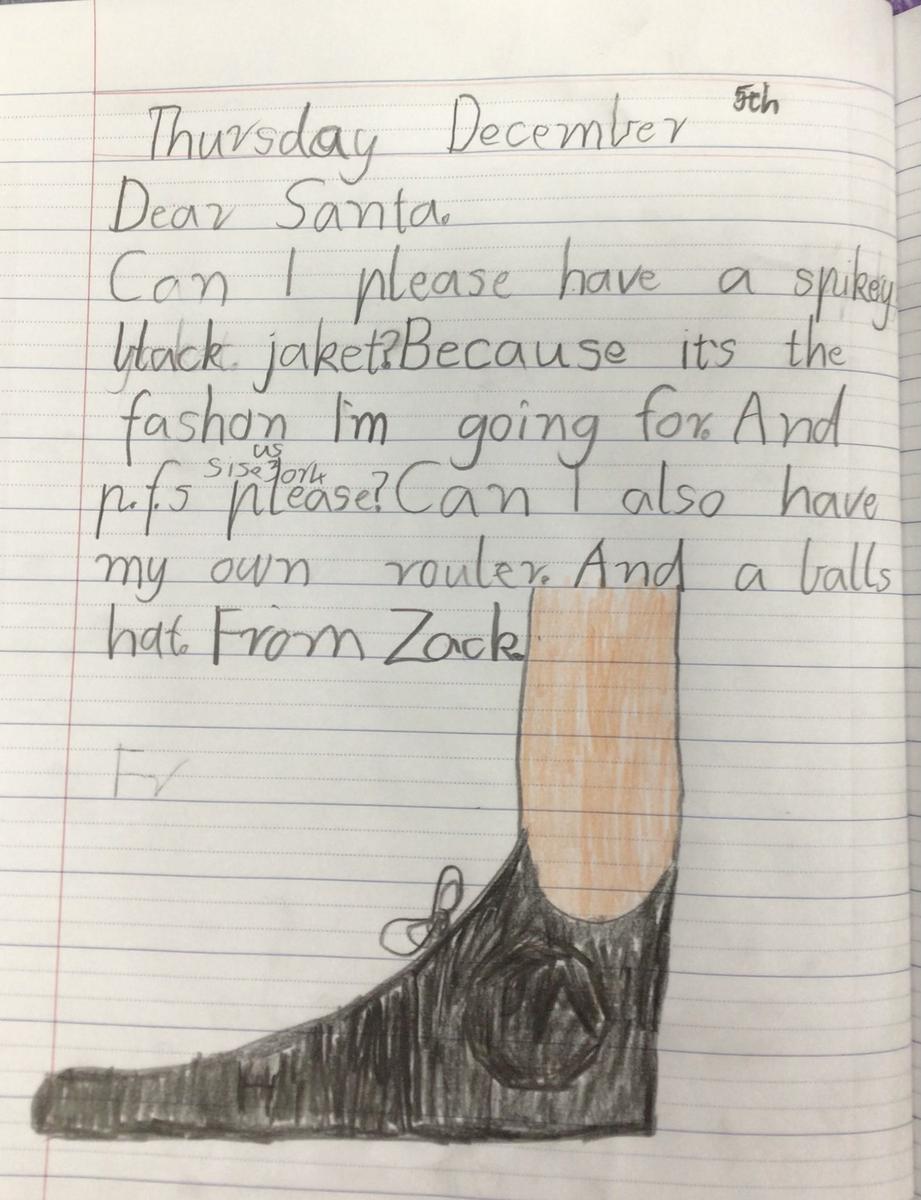 Thursday December 5th
Dear Santa.
Can I please have a spikey
black jaket? Because it's the
fashon I'm going for. And
us
p.f.s please? Can I also have
my own router. And a balls
hat. From Zack.
Fr